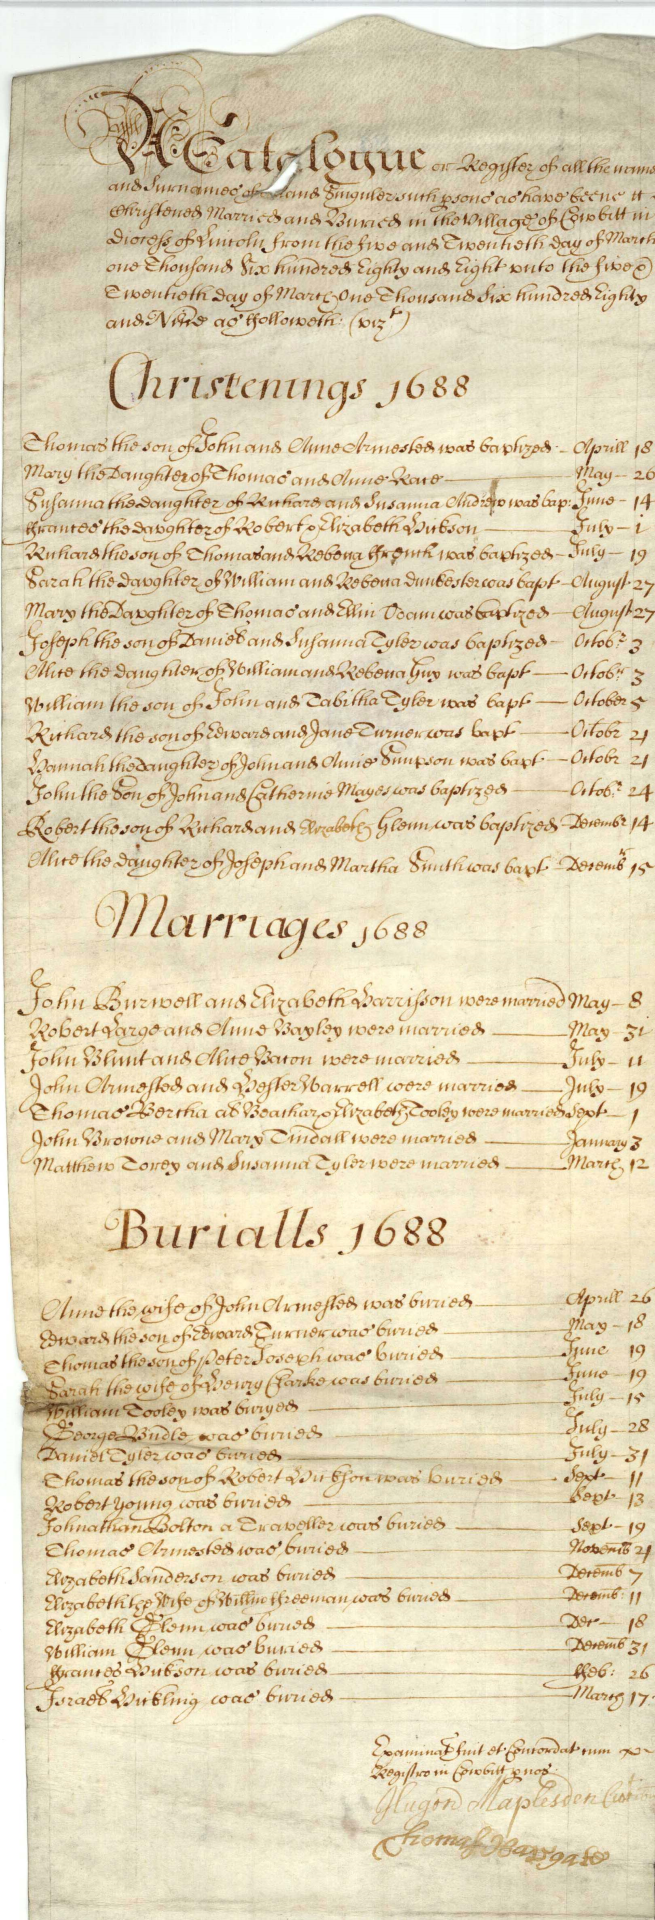 A Catalogue or Register of all the name
and Surnames of and Singuler such psons as have beene
Christened Married and Buried in the Village of Cowbitt in
Diocess of Lincoln from the five and Twentieth day of March
one Thousand Six hundred Eighty and Eight unto the five &
Twentieth day of March One Thousand Six hundred Eighty
and Nine as ffolloweth: (vizt)
Christenings 1688
Thomas the son of John and Anne Armested was baptized Aprill 18
Mary the Daughter of Thomas and Anne Race May 26
Susanna the daughter of Richard and Susanna Andrew was bap: June 14
ffrances the daughter of Robert & Elizabeth Hickson July 1
Richard the son of Thomas and Rebecca ffrench was baptized July 19
Sarah the daughter of William and Rebecca was bapt August 27
Mary the Daughter of Thomas and Ellin was baptized August 27
Joseph the son of Daniel and Susanna Tyler was baptized Octobr 3
Alice the daughter of William and Rebecca Guy was bapt Octobr 3
William the son of John and Tabitha Tyler was bapt October 5
Richard the son of Edward and Jane Turner was bapt Octobr 21
Hannah the daughter of John and Anne Simpson was bapt Octobr 21
John the Son of John and Catherine Mayes was baptized Octobr 24
Robert the son of Richard and Elizabeth Glenn was baptized Decembr 14
Alice the daughter of Joseph and Martha Smith was bapt Decembr 15
Marriages 1688
John Burwell and Elizabeth Harrisson were married May 8
Robert Large and Anne Bayley were married May 31
John Blunt and Alice Bacon were married July 11
John Armested and Hester Warrell were married July 19
Thomas Bertha als & Elizabeth Tooley were married Sept 1
John Browne and Mary Tindall were married January 3
Matthew Torey and Susanna Tyler were married March 12
Burialls 1688
Anne the wife of John Armested was buried Aprill 26
Edward the son of Edward Turner was buried May 18
Thomas the son of Peter Joseph was buried June 19
Sarah the wife of Henry Clarke was buried June 19
William Tooley was buryed July 15
George was buried July 28
Daniel Tyler was buried July 31
Thomas the son of Robert Hickson was buried Sept 11
Robert Young was buried Sept 13
Johnathan Bolton a Traveller was buried Sept 19
Thomas Armested was buried Novemb 21
Elizabeth Sanderson was buried Decemb 7
Elizabeth ye Wife of Willm ffreeman was buried Decemb: 11
Elizabeth Glenn was buried Dec 18
William Glenn was buried Decemb 31
ffrances Hickson was buried ffeb: 26
Israel Hickling was buried March 17
Examinat fuit et Concordat cum
Registro in Cowbitt p nos
Hugon Maplesden
Thomas